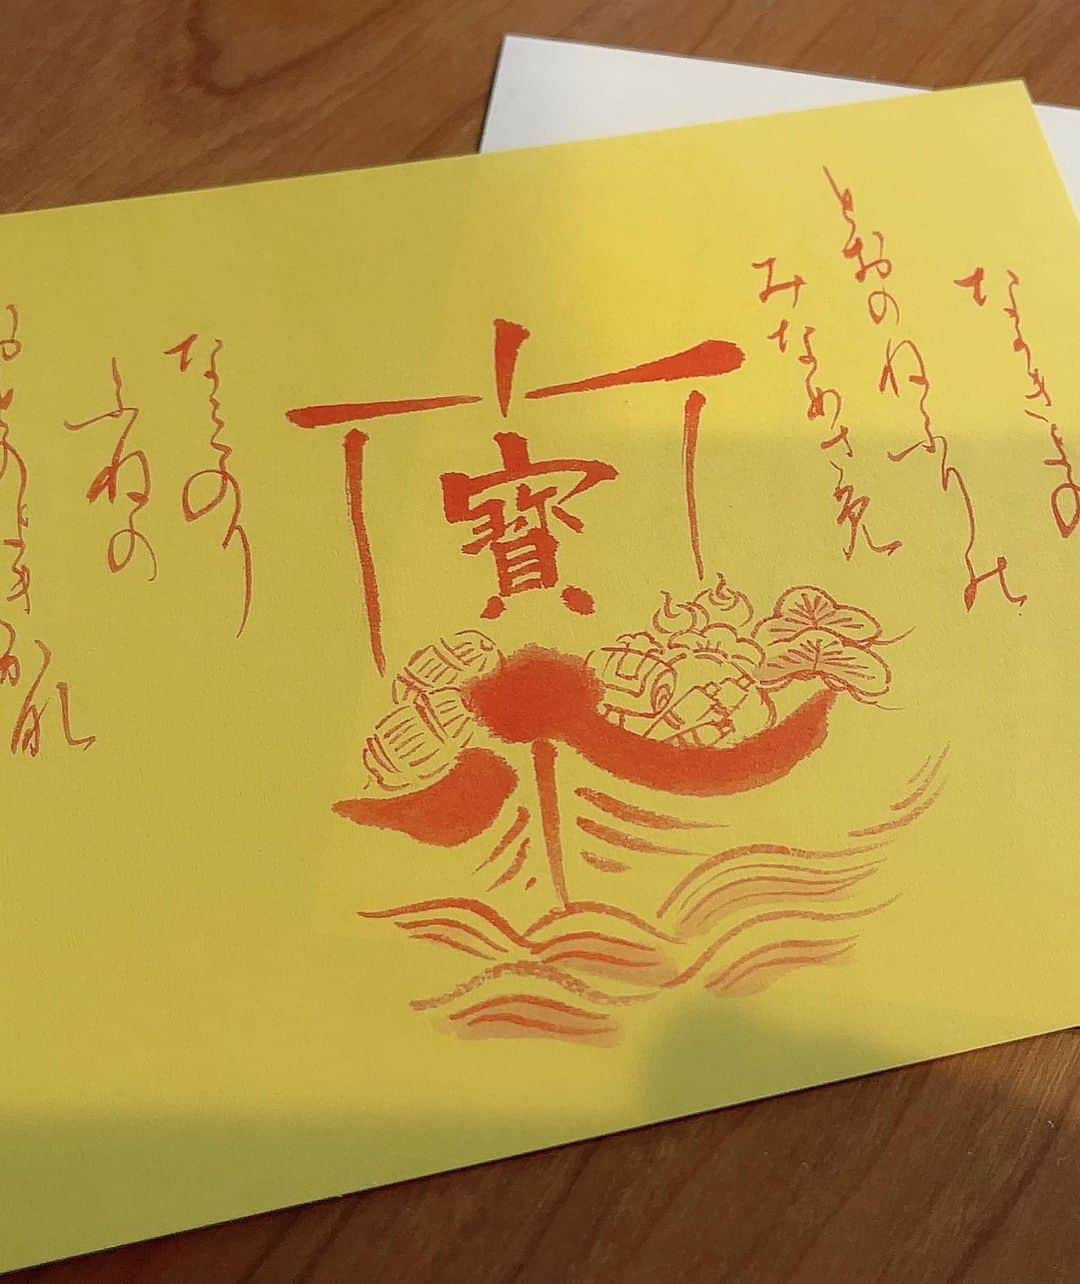 なかきよの
とおのねふりの
みなめさめ
寶
なみのり
ふねの
おとのよきかな